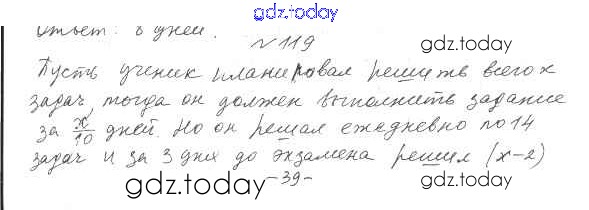 gdz.today
Ответ: 6 дней.
№119 gdz.today
Пусть ученик планировал решить всего x
задач, тогда он должен выполнить задание
за x/10 дней. Но он решал ежедневно по 14
задач и за 3 дня до экзамена решил (x-2)
gdz.today -39- gdz.today